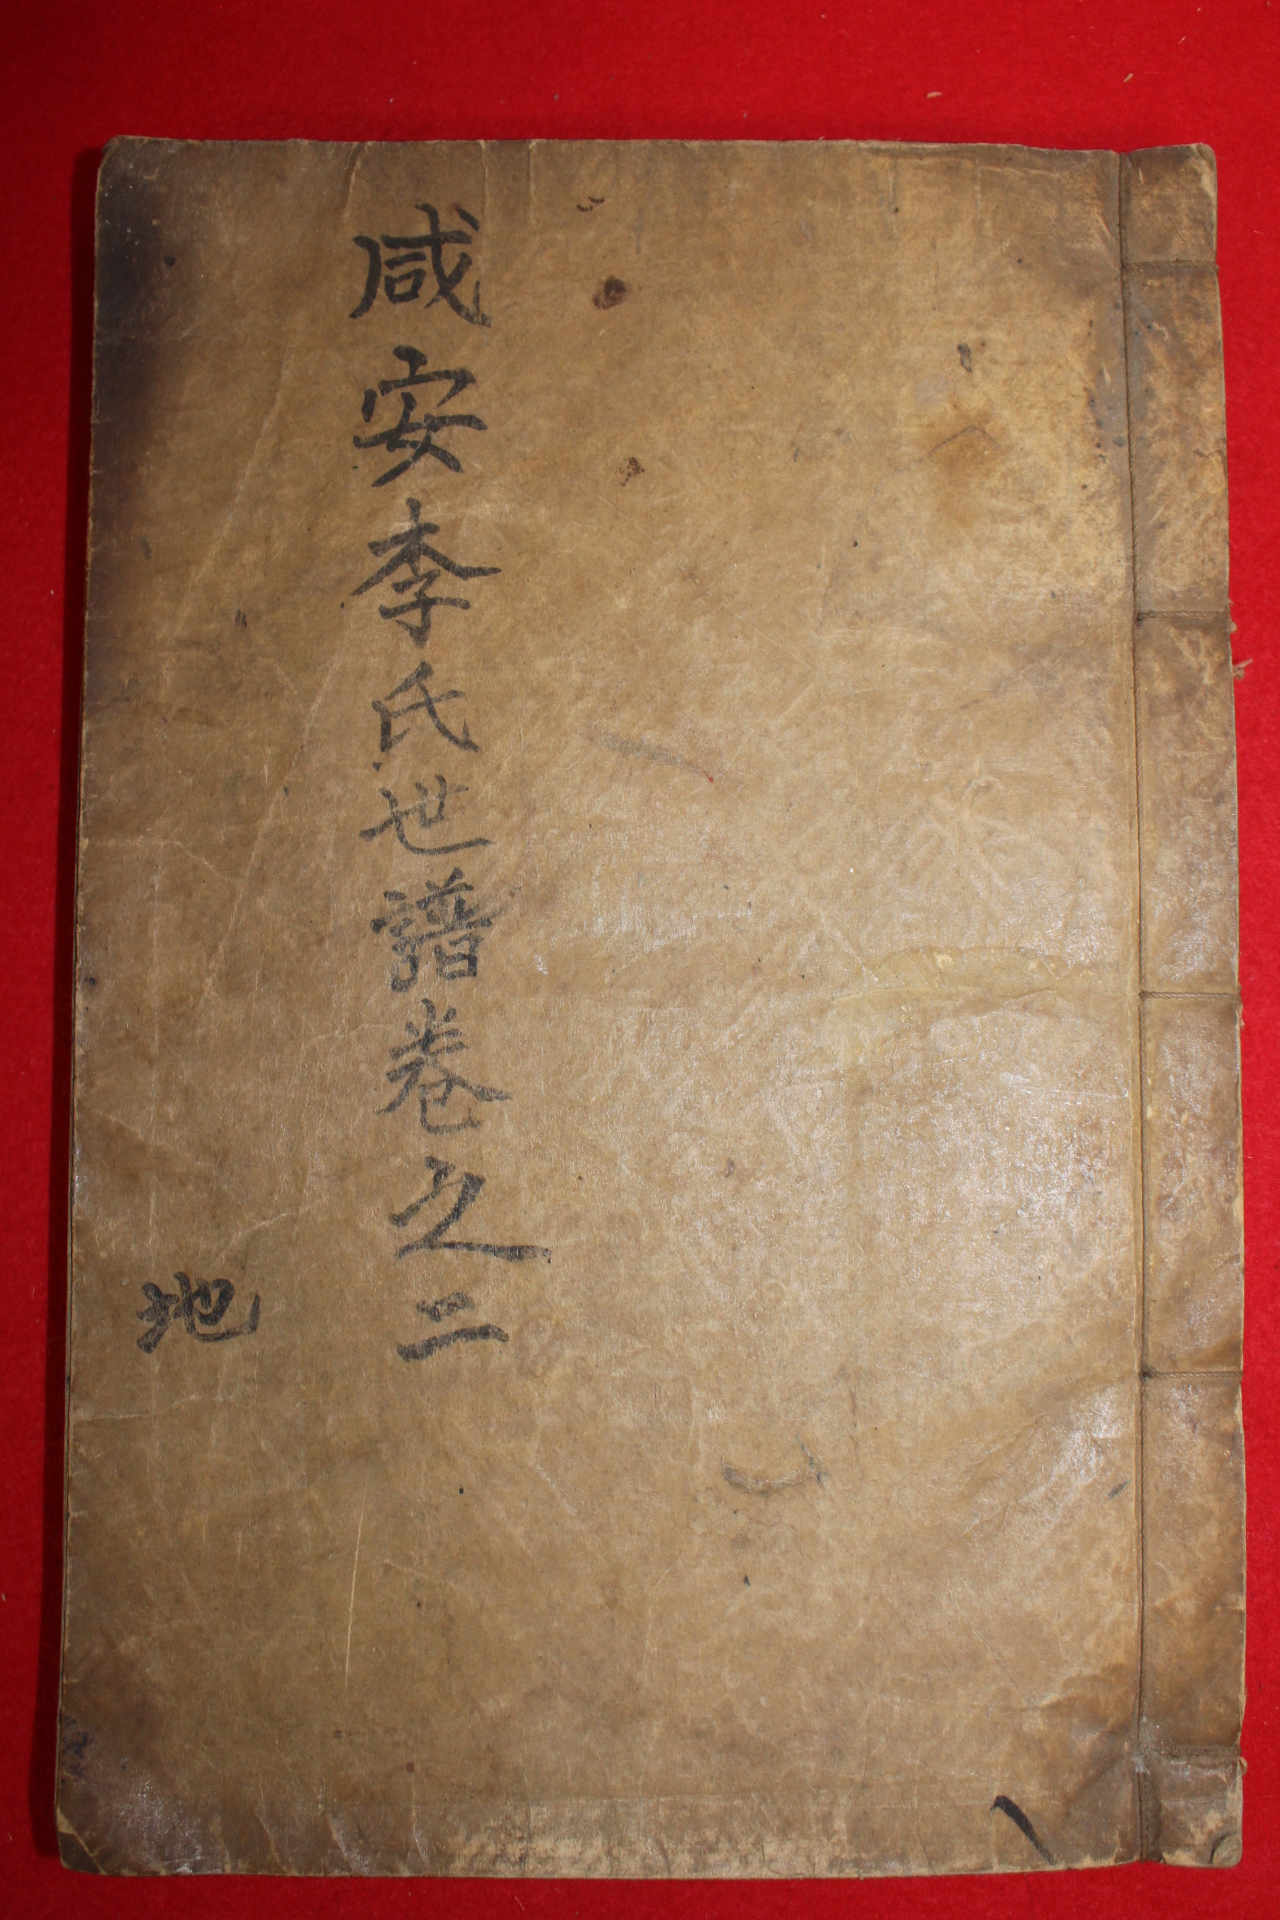 咸安李氏世譜卷之二
地